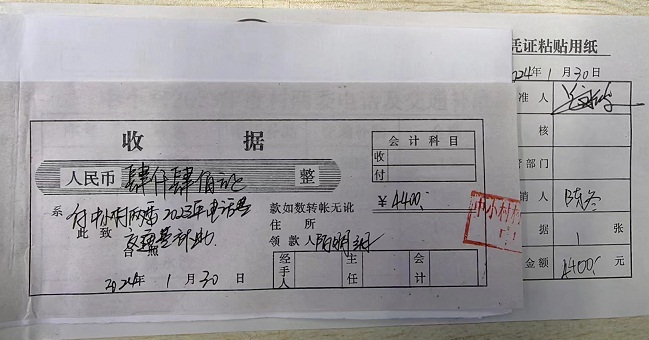 收 据
会 计 科 目
收
付
人民币 肆仟肆佰元 整
¥4400.
系 付中小村两委2023年电话费
交通费补助
此 致
台 照
款如数转帐无讹
住 所
领 款 人
2024年 1 月 30 日
经手人
主任
会计
中小村
凭证粘贴用纸
2024年 1 月 30 日
准 人
核
管部门
销 人
据 1 张
金额 4400. 元